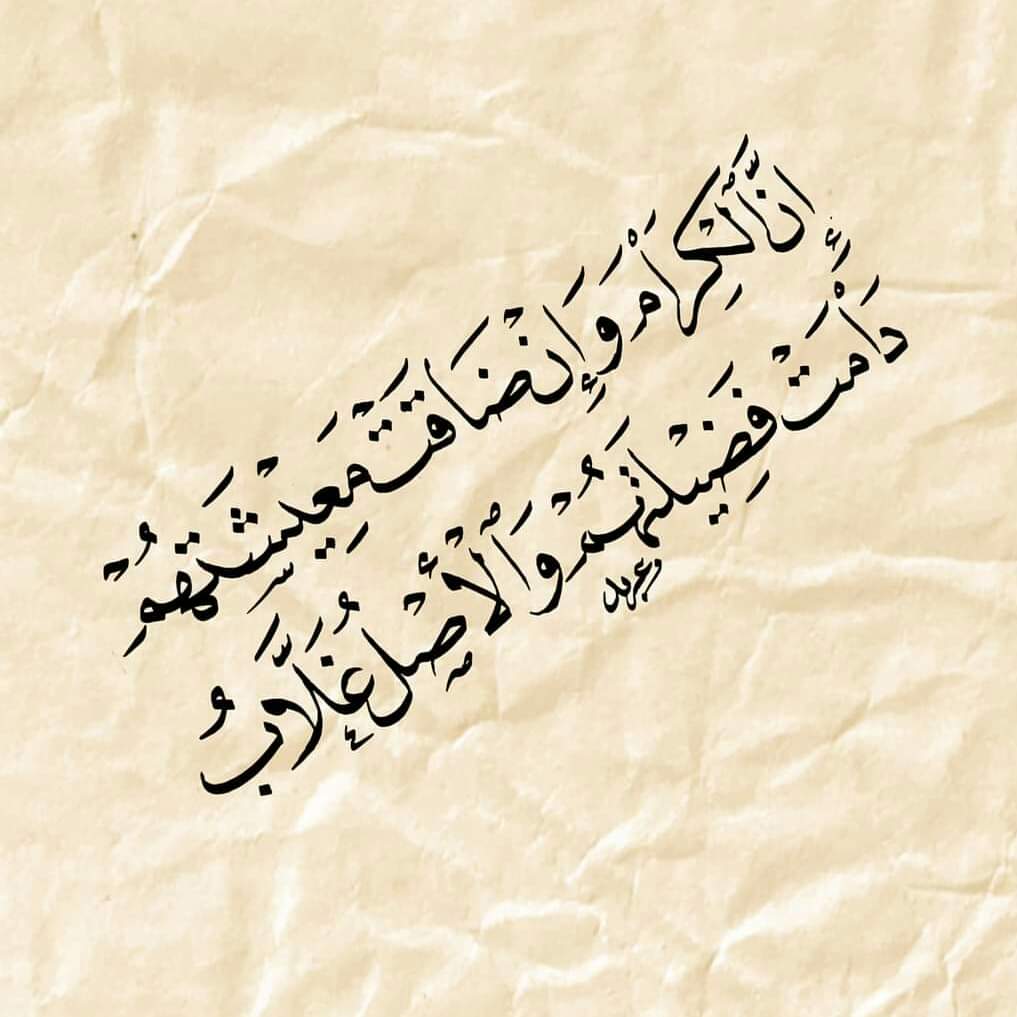 إنَّ الْكِرَامَ وَإِنْ ضَاقَتْ مَعِيْشَتُهُمْ
دَامَتْ فَضِيْلَتُهُمْ وَالْأَصْلُ غَلَّابُ